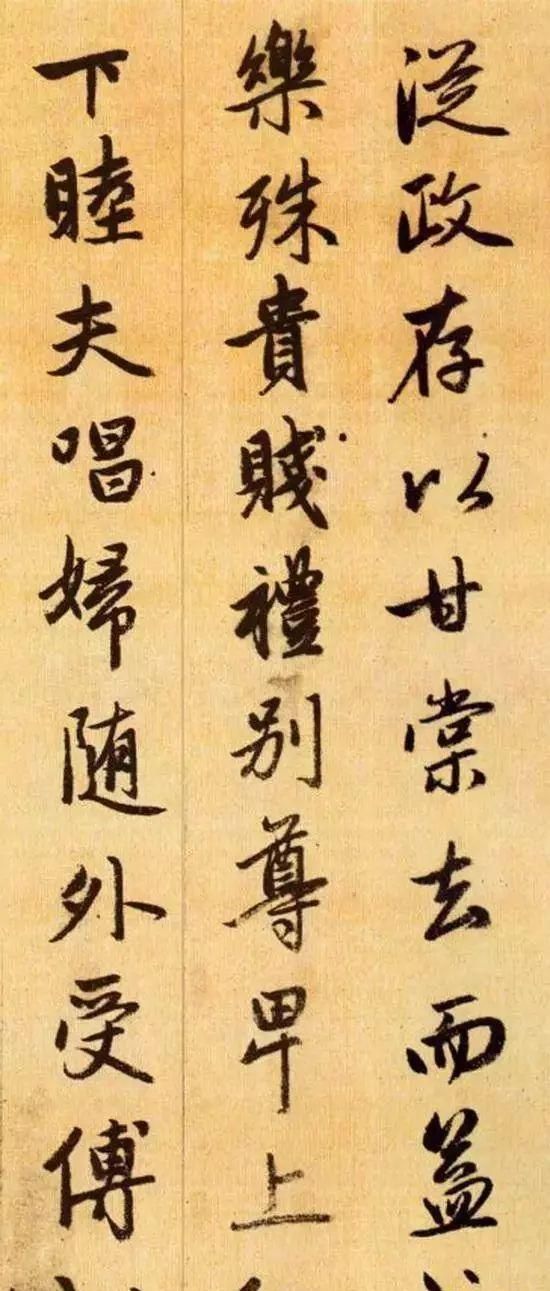 從政存以甘棠去而益
樂殊貴賤禮別尊卑上
下睦夫唱婦随外受傅